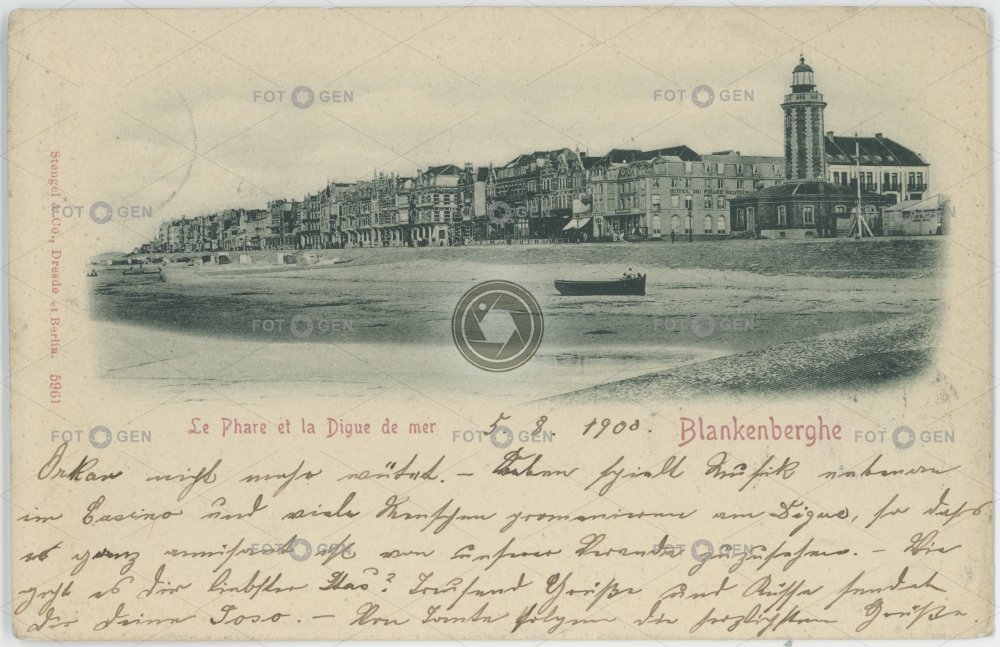 HOTEL DU PHARE RESTAURANT
Stengel & Co., Dresde et Berlin. 5961
Le Phare et la Digue de mer
5. 8. 1900.
Blankenberghe
Orkan nicht mehr wütet. – Neben spielt Musik nebenan
im Casino und viele Menschen promenieren am Digue, so dass
es ganz amüsant ist von unserer Veranda zuzusehen. – Wie
geht es Dir liebster Stas? Tausend Grüße und Küsse sendet
Dir Deine Soso. – Von Tante folgen die herzlichsten Grüße.
FOTOGEN